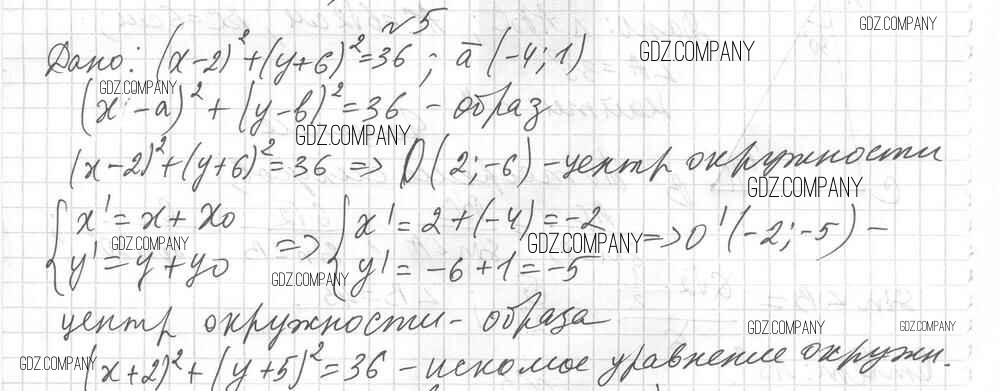 №5
Дано: (x-2)²+(y+6)²=36; ā(-4;1)
GDZ.COMPANY
GDZ.COMPANY
GDZ.COMPANY
(x-a)²+(y-b)²=36 - образ
GDZ.COMPANY
(x-2)²+(y+6)²=36 => O(2;-6) - центр окружности
GDZ.COMPANY
{x'=x+x₀ => {x'=2+(-4)=-2
GDZ.COMPANY
GDZ.COMPANY
y'=y+y₀ y'=-6+1=-5 => O'(-2;-5) -
GDZ.COMPANY
центр окружности - образа
GDZ.COMPANY
GDZ.COMPANY
GDZ.COMPANY
(x+2)²+(y+5)²=36 - искомое уравнение окружн.